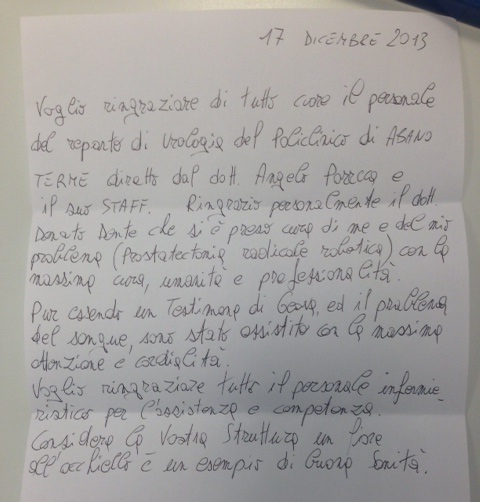 17 DICEMBRE 2013
Voglio ringraziare di tutto cuore il personale
del reparto di Urologia del Policlinico di ABANO
TERME diretto dal dott. Angelo Porreca e
il suo STAFF. Ringrazio personalmente il dott.
Donato Dente che si è preso cura di me e del mio
problema (Prostatectomia radicale robotica) con la
massima cura, umanità e professionalità.
Pur essendo un Testimone di Geova, ed il problema
del sangue, sono stato assistito con la massima
attenzione e cordialità.
Voglio ringraziare tutto il personale infermie-
ristico per l'assistenza e competenza.
Considero la Vostra Struttura un fiore
all'occhiello è un esempio di buona Sanità.